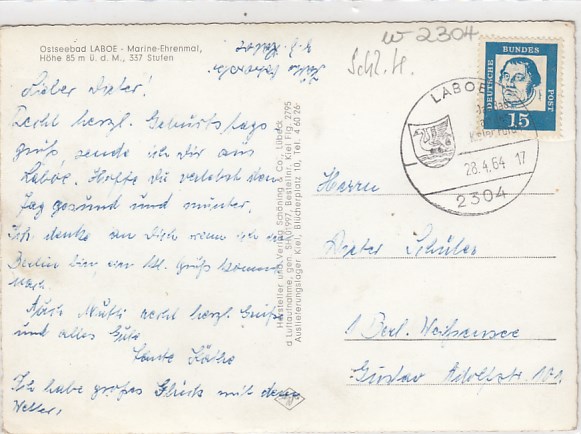 Ostseebad LABOE - Marine-Ehrenmal,
Höhe 85 m ü. d. M., 337 Stufen
w-2304
Schl. H.
Lieber Dieter!
Recht herzl. Geburtstags
gruß, sende ich Dir aus
Laboe. Hoffe Du verlebst den
Tag gesund und munter.
Ich denke an Dich wenn ich in
Berlin bin ein kl. Gruß kommt
nach.
Auch Mutti recht herzl. Grüße
und alles Gute
Tante Käthe
Ich habe großes Glück mit dem
Wetter.
Hersteller und Verlag Schöning & Co., Lübeck
Luftaufnahme, gen. SH 0/1997, Bestellnr. Kiel Flg. 2795
Auslieferungslager Kiel, Blücherplatz 10, Tel. 4 60 26
DEUTSCHE BUNDESPOST
15
LABOE
28.4.64 17
2304
Herrn
Dieter Schüler
1 Berl. Weißensee
Gustav Adolfstr. 101